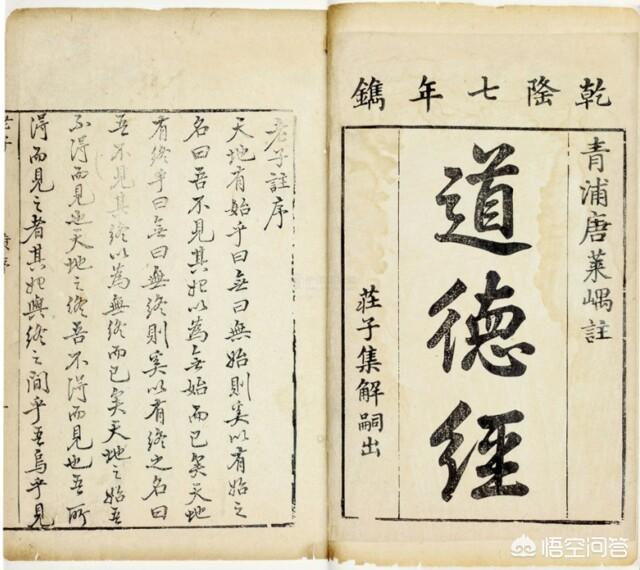 乾隆七年鐫
青浦唐萊嵎註
道德經
荘子集解嗣出
老子註序
天地有始乎曰無曰無始則奚以有始之
名曰吾不見其始以為無始而已矣天地
有終乎曰無曰無終則奚以有終之名曰
吾不見其終以為無終而已矣天地之始吾
不得而見也天地之終吾不得而見也吾所
得而見之者其始與終之間乎吾烏乎見
悟空问答